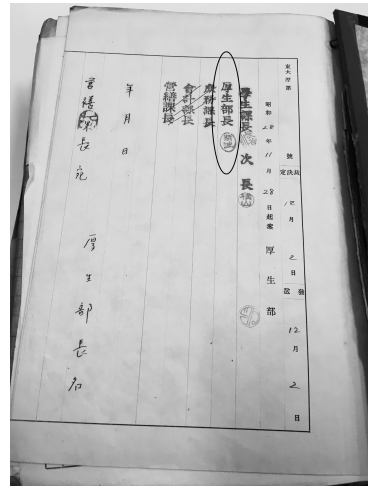 東大厚第 號 決定 12月2日 發送 12月2日
昭和28年11月28日起案 厚生部
學生課長 次長
厚生部長
庶務課長
會計課長
營繕課長
年 月 日
営繕課長宛 厚生部長名